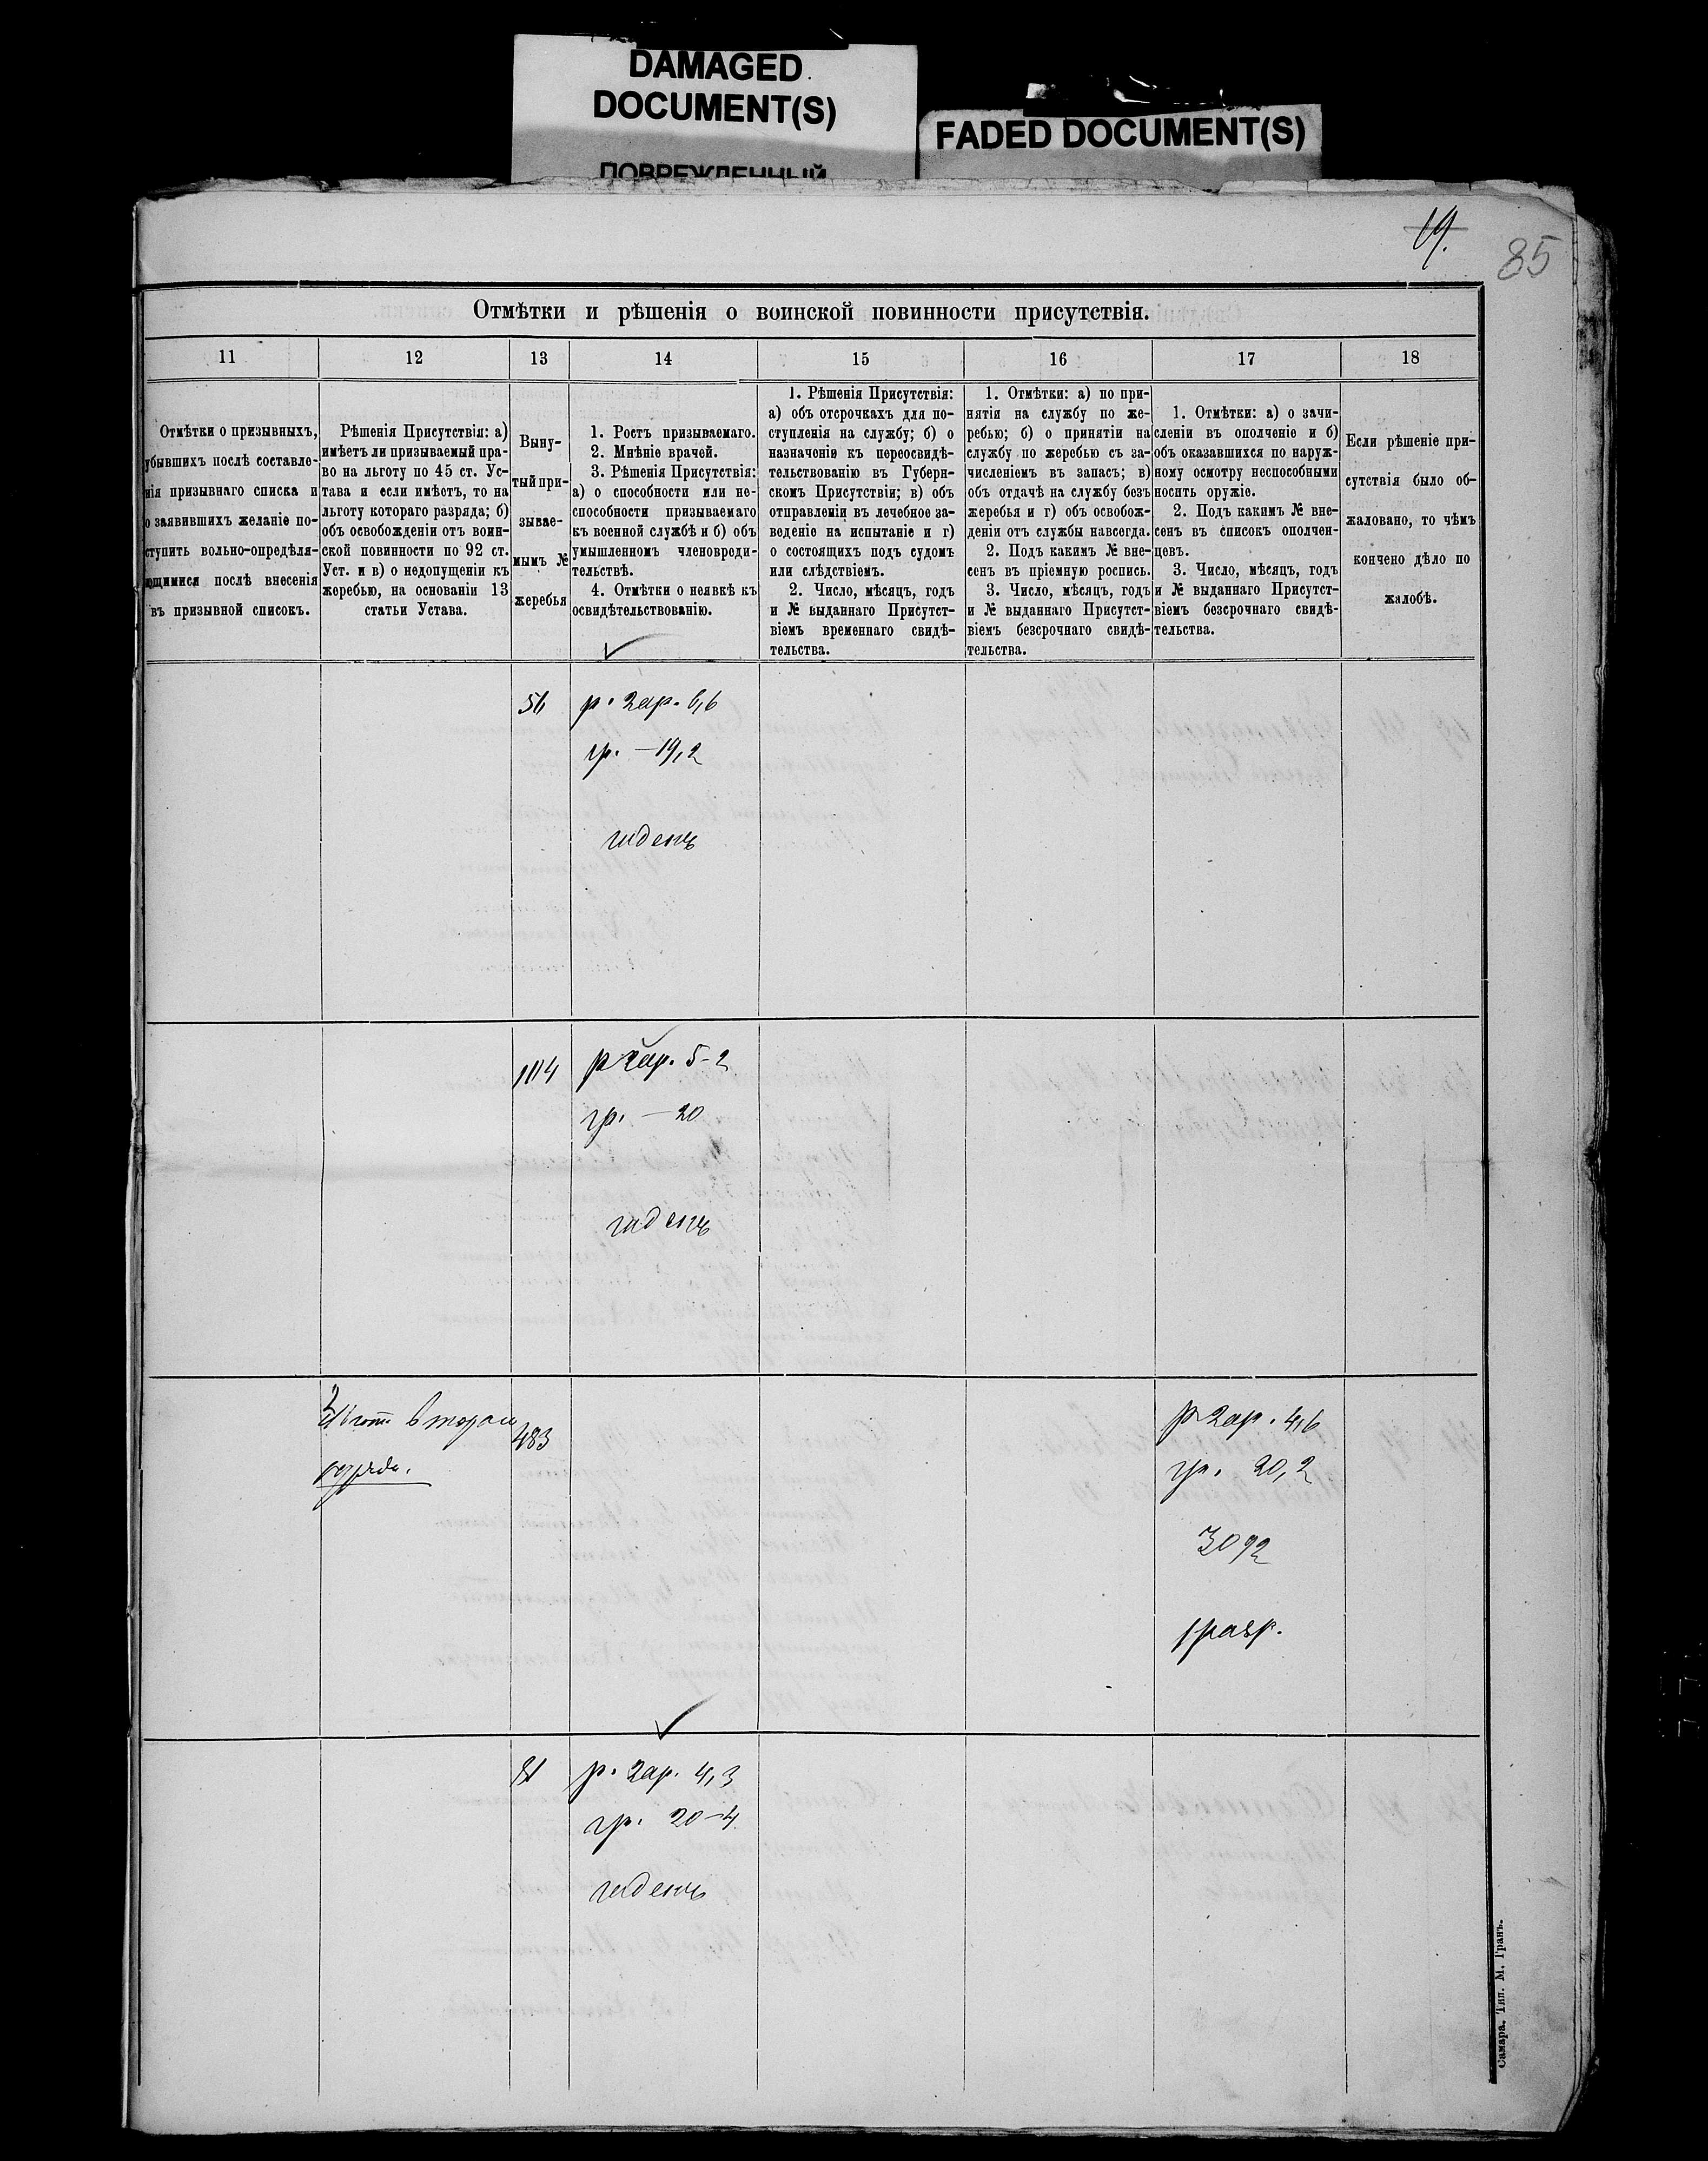 DAMAGED
DOCUMENT(S)
ПОВРЕЖДЕННЫЙ
FADED DOCUMENT(S)
19.
85
Отмѣтки и рѣшенія о воинской повинности присутствія.
11 12 13 14 15 16 17 18
Отмѣтки о призывныхъ,
убывшихъ послѣ составле-
нія призывнаго списка и
о заявившихъ желаніе по-
ступить вольно-опредѣля-
ющимися послѣ внесенія
въ призывной списокъ.
Рѣшенія Присутствія: а)
имѣетъ ли призываемый пра-
во на льготу по 45 ст. Ус-
тава и если имѣетъ, то на
льготу котораго разряда; б)
объ освобожденіи отъ воин-
ской повинности по 92 ст.
Уст. и в) о недопущеніи къ
жеребью, на основаніи 13
статьи Устава.
Выну-
тый при-
зывае-
мымъ №
жеребья
1. Ростъ призываемаго.
2. Мнѣніе врачей.
3. Рѣшенія Присутствія:
а) о способности или не-
способности призываемаго
къ военной службѣ и б) объ
умышленномъ членовреди-
тельствѣ.
4. Отмѣтки о неявкѣ къ
освидѣтельствованію.
1. Рѣшенія Присутствія:
а) объ отсрочкахъ для по-
ступленія на службу; б) о
назначеніи къ переосвидѣ-
тельствованію въ Губерн-
скомъ Присутствіи; в) объ
отправленіи въ лечебное за-
веденіе на испытаніе и г)
о состоящихъ подъ судомъ
или слѣдствіемъ.
2. Число, мѣсяцъ, годъ
и № выданнаго Присутст-
віемъ временнаго свидѣ-
тельства.
1. Отмѣтки: а) по при-
нятіи на службу по же-
ребью; б) о принятіи на
службу по жеребью съ за-
численіемъ въ запасъ; в)
объ отдачѣ на службу безъ
жеребья и г) объ освобож-
деніи отъ службы навсегда.
2. Подъ какимъ № вне-
сенъ въ пріемную роспись.
3. Число, мѣсяцъ, годъ
и № выданнаго Присутст-
віемъ безсрочнаго свидѣ-
тельства.
1. Отмѣтки: а) о зачи-
сленіи въ ополченіе и б)
объ оказавшихся по наруж-
ному осмотру неспособными
носить оружіе.
2. Подъ какимъ № вне-
сенъ въ списокъ ополчен-
цевъ.
3. Число, мѣсяцъ, годъ
и № выданнаго Присутст-
віемъ безсрочнаго свидѣ-
тельства.
Если рѣшеніе при-
сутствія было об-
жаловано, то чѣмъ
кончено дѣло по
жалобѣ.
р. 2 ар. 6,6
гр. — 19,2
годенъ
р 2 ар. 5-2
гр. — 20
годенъ
483
р 2 ар. 4,6
гр. 20,2
3092
1 разр.
р. 2 ар. 4,3
гр. 20-4
годенъ
Самара. Тип. М. Гранъ.